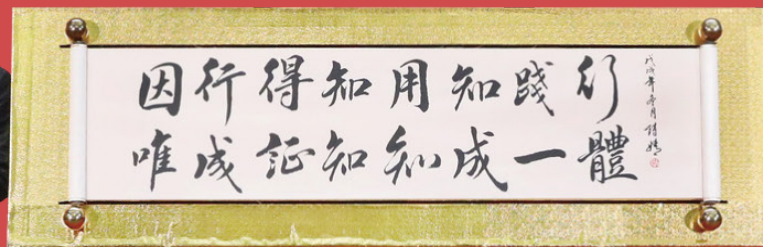 因行得知用知踐行
唯成証知知成一體
戊戌年